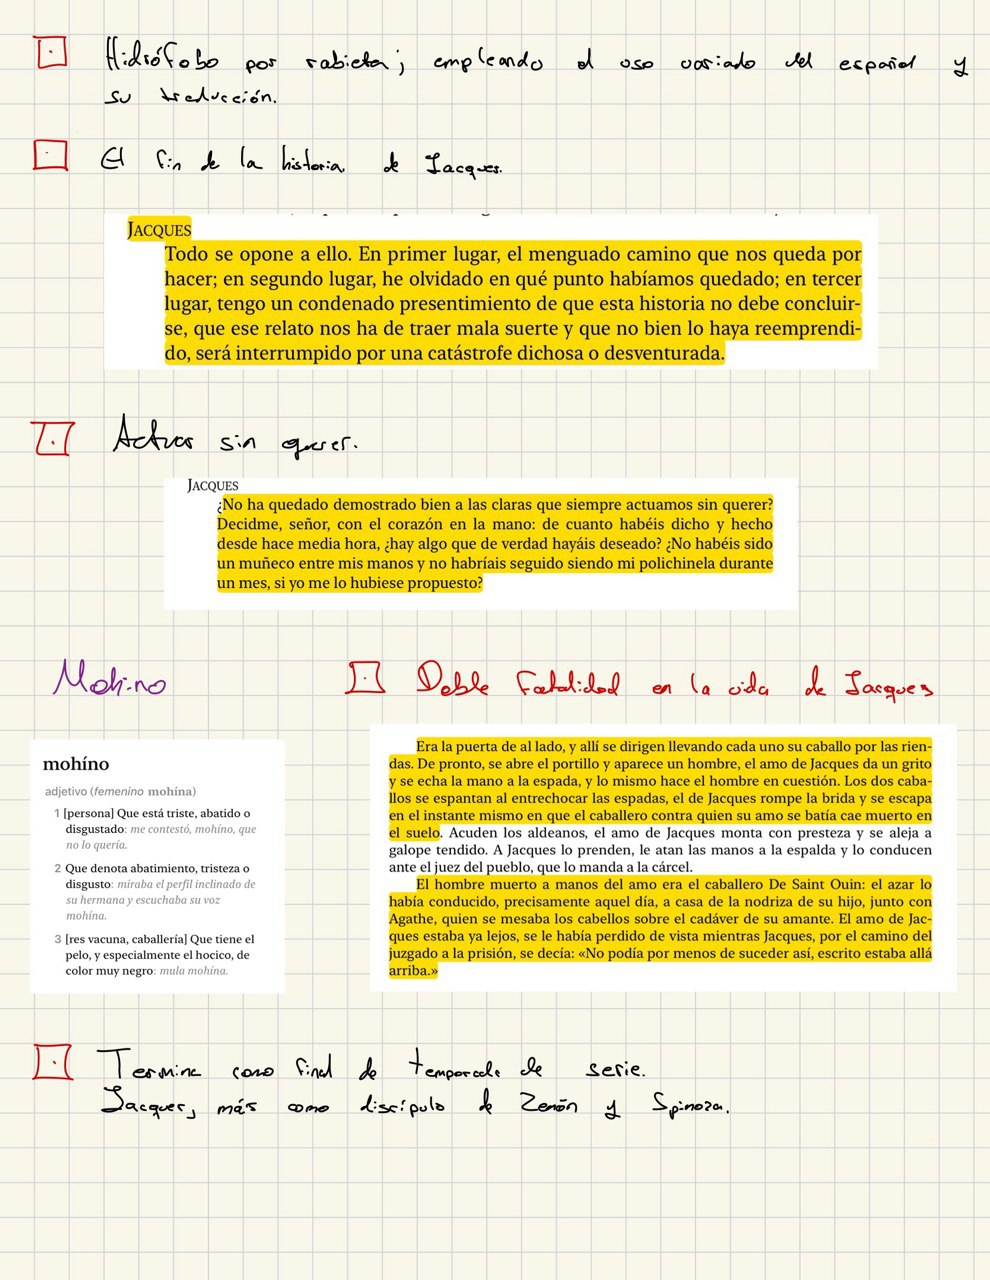 Hidrófobo por rabieta; empleando el uso variado del español y
su traducción.
El fin de la historia de Jacques.
JACQUES
Todo se opone a ello. En primer lugar, el menguado camino que nos queda por
hacer; en segundo lugar, he olvidado en qué punto habíamos quedado; en tercer
lugar, tengo un condenado presentimiento de que esta historia no debe concluir-
se, que ese relato nos ha de traer mala suerte y que no bien lo haya reemprendi-
do, será interrumpido por una catástrofe dichosa o desventurada.
Actuar sin querer.
JACQUES
¿No ha quedado demostrado bien a las claras que siempre actuamos sin querer?
Decidme, señor, con el corazón en la mano: de cuanto habéis dicho y hecho
desde hace media hora, ¿hay algo que de verdad hayáis deseado? ¿No habéis sido
un muñeco entre mis manos y no habríais seguido siendo mi polichinela durante
un mes, si yo me lo hubiese propuesto?
Mohino
mohíno
adjetivo (femenino mohína)
1 [persona] Que está triste, abatido o
disgustado: me contestó, mohíno, que
no lo quería.
2 Que denota abatimiento, tristeza o
disgusto: miraba el perfil inclinado de
su hermana y escuchaba su voz
mohína.
3 [res vacuna, caballería] Que tiene el
pelo, y especialmente el hocico, de
color muy negro: mula mohína.
Doble Fatalidad en la vida de Jacques
Era la puerta de al lado, y allí se dirigen llevando cada uno su caballo por las rien-
das. De pronto, se abre el portillo y aparece un hombre, el amo de Jacques da un grito
y se echa la mano a la espada, y lo mismo hace el hombre en cuestión. Los dos caba-
llos se espantan al entrechocar las espadas, el de Jacques rompe la brida y se escapa
en el instante mismo en que el caballero contra quien su amo se batía cae muerto en
el suelo. Acuden los aldeanos, el amo de Jacques monta con presteza y se aleja a
galope tendido. A Jacques lo prenden, le atan las manos a la espalda y lo conducen
ante el juez del pueblo, que lo manda a la cárcel.
El hombre muerto a manos del amo era el caballero De Saint Ouin: el azar lo
había conducido, precisamente aquel día, a casa de la nodriza de su hijo, junto con
Agathe, quien se mesaba los cabellos sobre el cadáver de su amante. El amo de Jac-
ques estaba ya lejos, se le había perdido de vista mientras Jacques, por el camino del
juzgado a la prisión, se decía: «No podía por menos de suceder así, escrito estaba allá
arriba.»
Termina como final de temporada de serie.
Jacques, más como discípulo de Zenón y Spinoza.